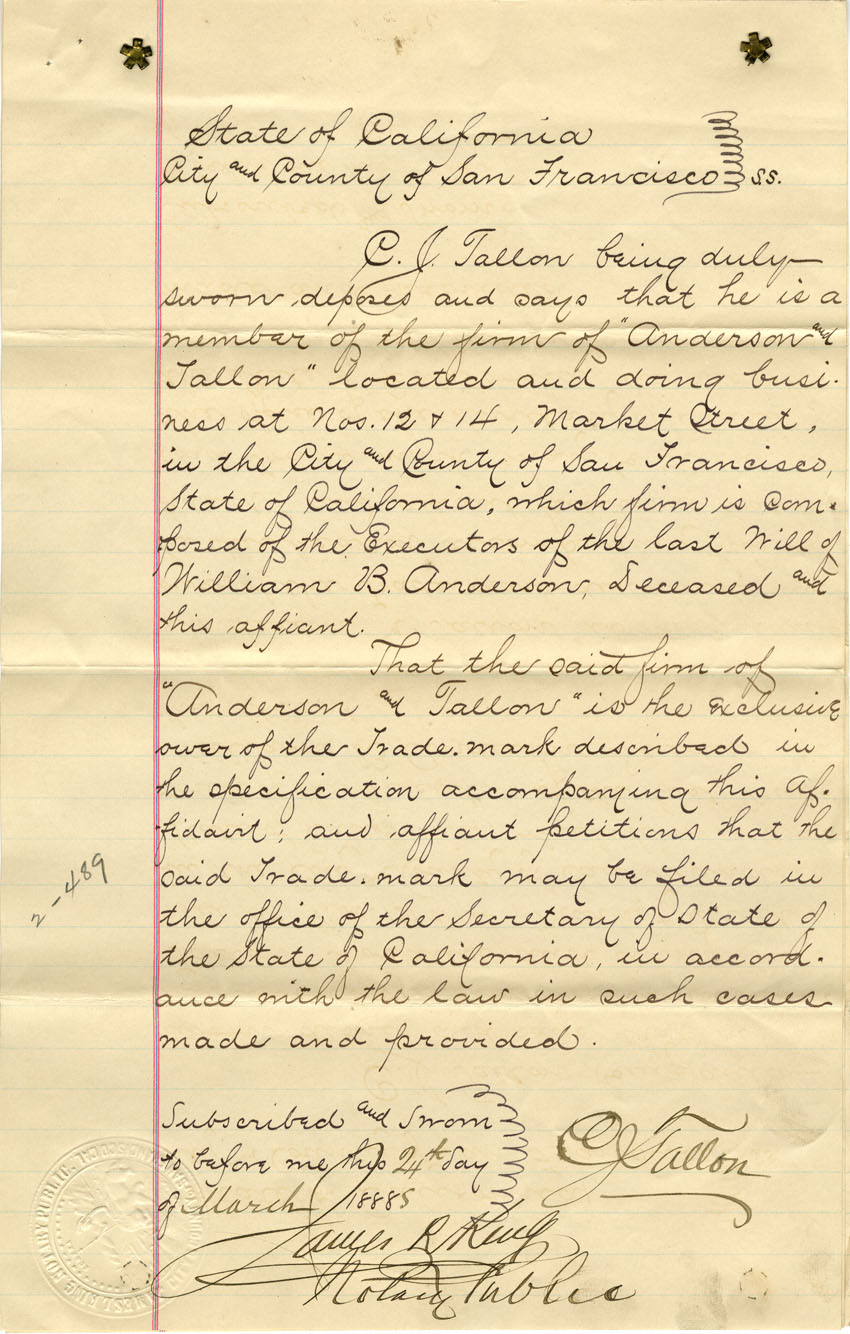 State of California
City and County of San Francisco ss.
C. J. Tallon being duly
sworn deposes and says that he is a
member of the firm of "Anderson and
Tallon" located and doing busi-
ness at Nos. 12 & 14, Market Street,
in the City and County of San Francisco,
State of California, which firm is com-
posed of the Executors of the last Will of
William B. Anderson, Deceased and
this affiant.
That the said firm of
"Anderson and Tallon" is the exclusive
ower of the Trade-mark described in
the specification accompanying this Af-
fidavit; and affiant petitions that the
said Trade-mark may be filed in
the office of the Secretary of State of
the State of California, in accord-
ance with the law in such cases
made and provided.
2-489
Subscribed and Sworn
to before me this 24th day
of March 1888
C J Tallon
James R King
Notary Public